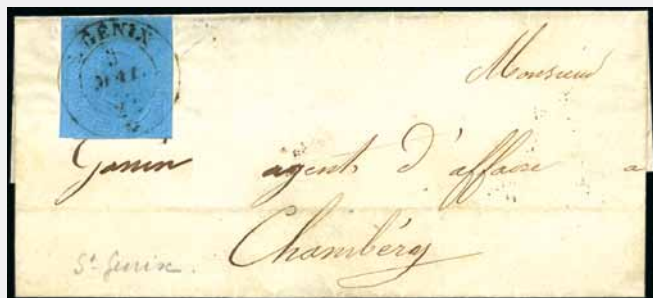 GÉNIX
MAI
Monsieur
Ganin agents d'affaire a
Chambéry
St Genix.